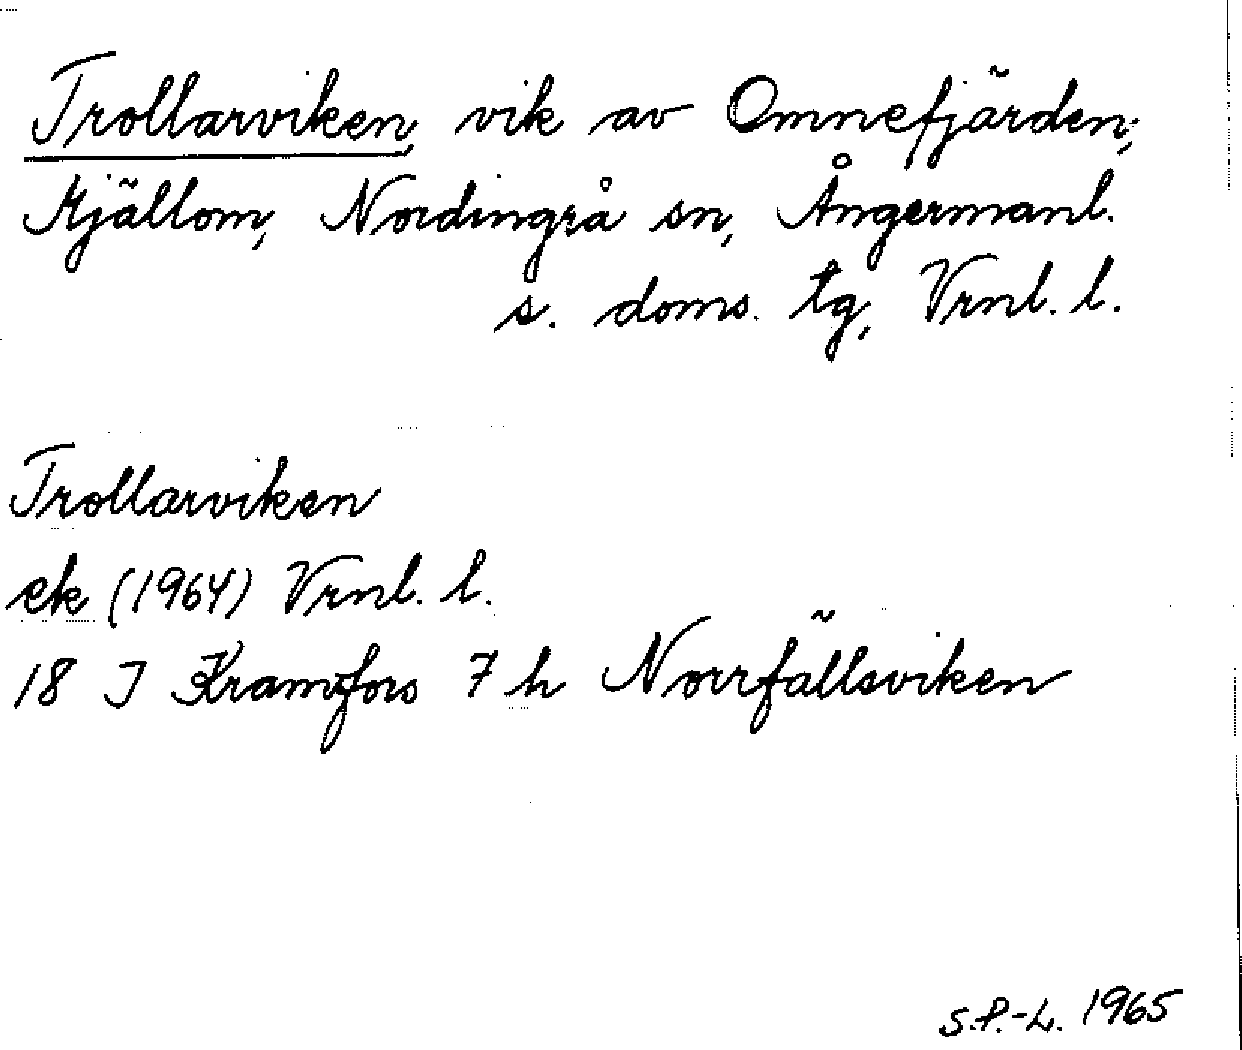 Trollarviken, vik av Omnefjärden;
Mjällom, Nordingrå sn, Ångermanl.
s. doms. tg, Vrnl. l.
Trollarviken
ek (1964) Vrnl. l.
18 J Kramfors 7 h Norrfällsviken
S.P.-L. 1965